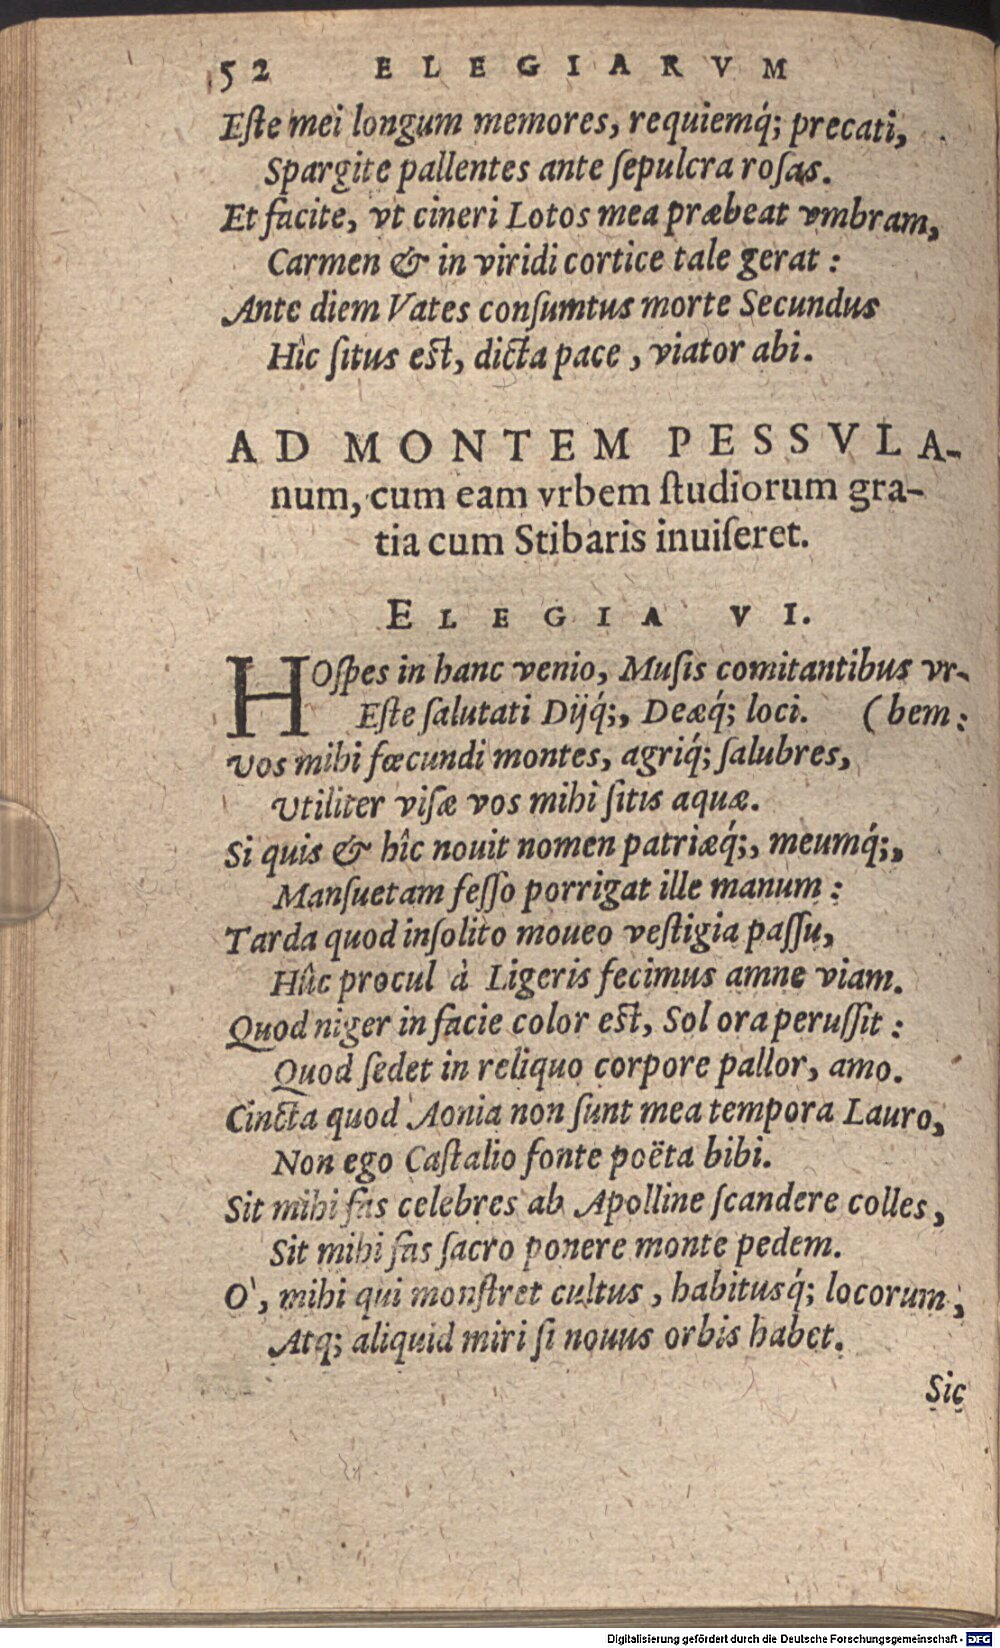 52 ELEGIARVM
Eſte mei longum memores, requiemq́; precati,
Spargite pallentes ante ſepulcra roſas.
Et facite, vt cineri Lotos mea præbeat vmbram,
Carmen & in viridi cortice tale gerat :
Ante diem Vates conſumtus morte Secundus
Hîc ſitus eſt, dicta pace , viator abi.
AD MONTEM PESSVLA-
num, cum eam vrbem ſtudiorum gra-
tia cum Stibaris inuiſeret.
ELEGIA VI.
HOſpes in hanc venio, Muſis comitantibus vr-
Eſte ſalutati Dijq́;, Deæq́; loci. (bem :
Vos mihi fœcundi montes, agriq́; ſalubres,
Vtiliter viſæ vos mihi ſitis aquæ.
Si quis & hîc nouit nomen patriæq́;, meumq́;,
Manſuetam feſſo porrigat ille manum :
Tarda quod inſolito moueo veſtigia paſſu,
Hûc procul à Ligeris fecimus amne viam.
Quod niger in facie color eſt, Sol ora peruſſit :
Quod ſedet in reliquo corpore pallor, amo.
Cincta quod Aonia non ſunt mea tempora Lauro,
Non ego Caſtalio fonte poëta bibi.
Sit mihi fas celebres ab Apolline ſcandere colles,
Sit mihi fas ſacro ponere monte pedem.
O`, mihi qui monſtret cultus , habitusq́; locorum,
Atq; aliquid miri ſi nouus orbis habet.
Sic
Digitalisierung gefördert durch die Deutsche Forschungsgemeinschaft - DFG